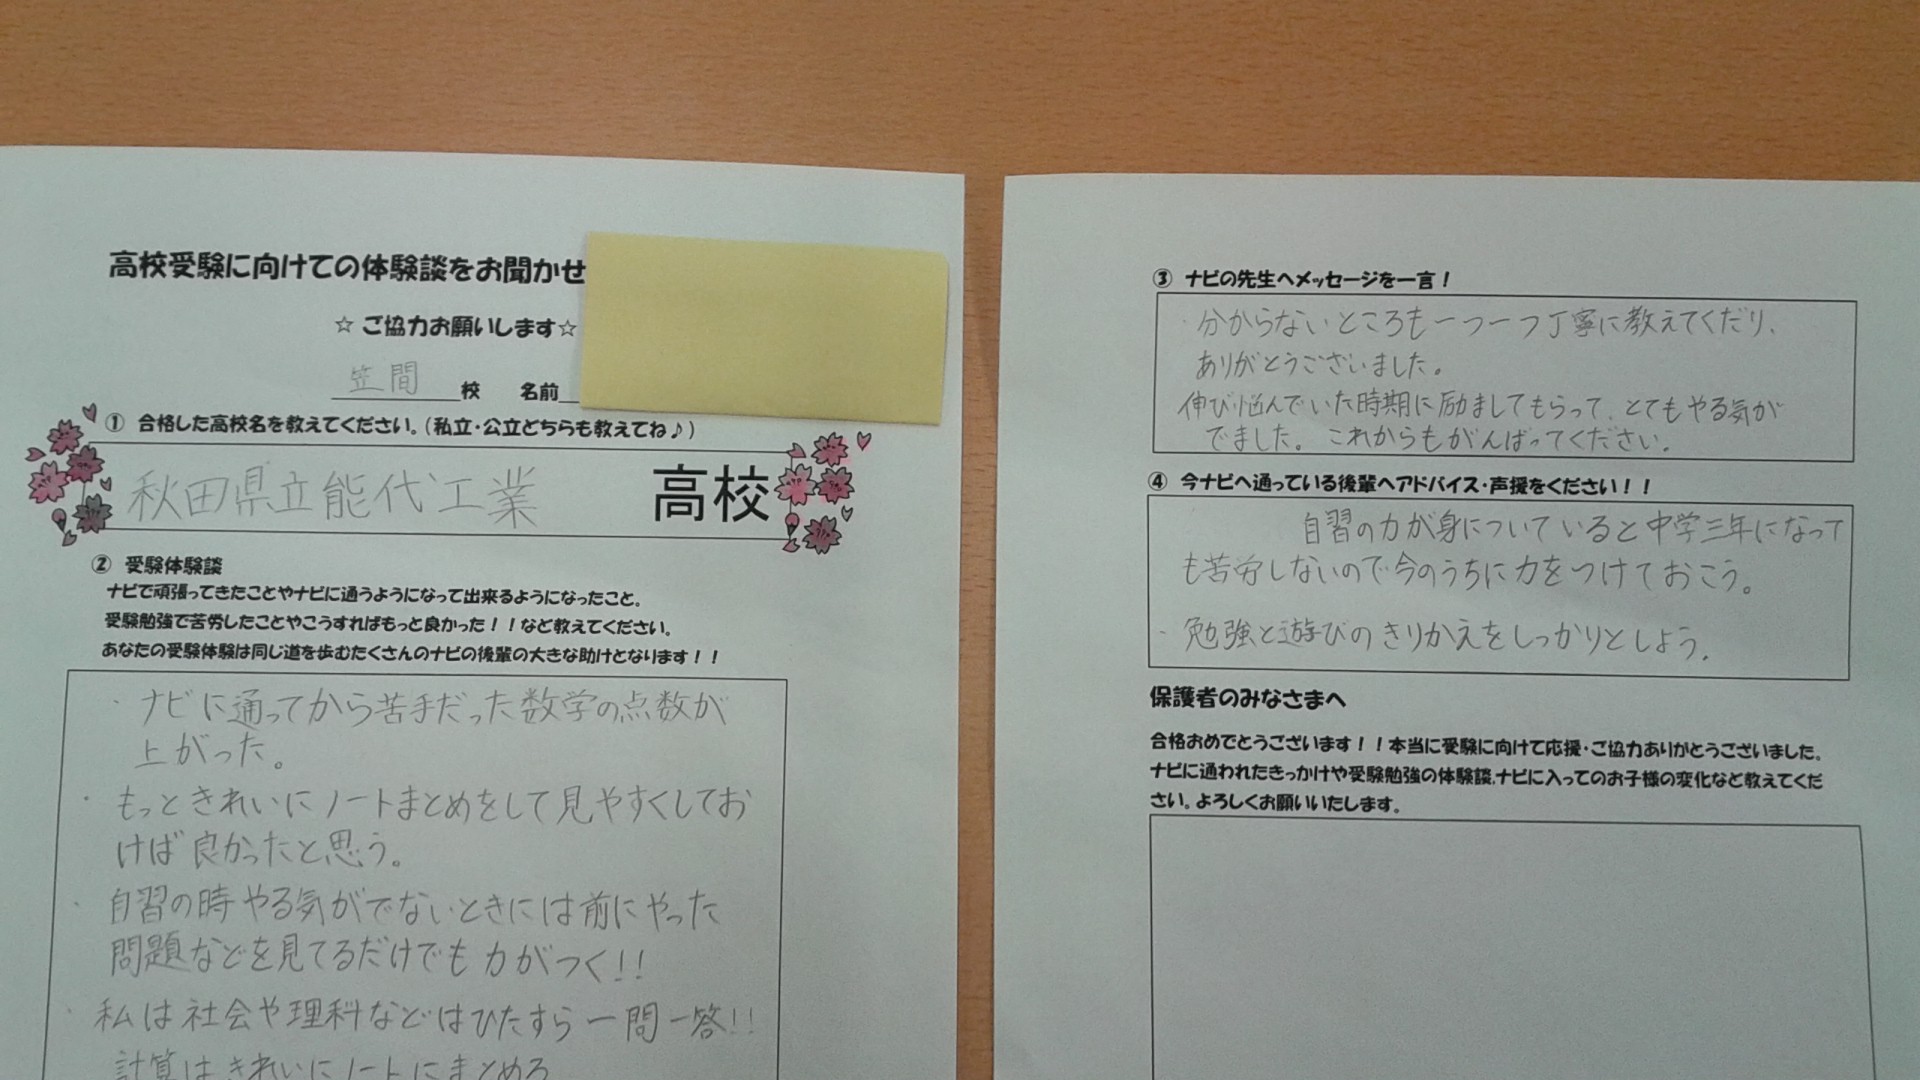 高校受験に向けての体験談をお聞かせ
☆ ご協力お願いします☆
笠間 校 名前
① 合格した高校名を教えてください。(私立・公立どちらも教えてね♪)
秋田県立能代工業 高校
② 受験体験談
ナビで頑張ってきたことやナビに通うようになって出来るようになったこと。
受験勉強で苦労したことやこうすればもっと良かった！！など教えてください。
あなたの受験体験は同じ道を歩むたくさんのナビの後輩の大きな助けとなります！！
・ナビに通ってから苦手だった数学の点数が
上がった。
・もっときれいにノートまとめをして見やすくしてお
けば良かったと思う。
・自習の時やる気がでないときには前にやった
問題などを見てるだけでも力がつく!!
・私は社会や理科などはひたすら一問一答!!
計算はきれいにノートにまとめる
③ ナビの先生へメッセージを一言！
・分からないところも一つ一つ丁寧に教えてくだり、
ありがとうございました。
伸び悩んでいた時期に励ましてもらって、とてもやる気が
でました。これからもがんばってください。
④ 今ナビへ通っている後輩へアドバイス・声援をください！！
自習の力が身についていると中学三年になって
も苦労しないので今のうちに力をつけておこう。
・勉強と遊びのきりかえをしっかりとしよう。
保護者のみなさまへ
合格おめでとうございます！！本当に受験に向けて応援・ご協力ありがとうございました。
ナビに通われたきっかけや受験勉強の体験談、ナビに入ってのお子様の変化など教えてくだ
さい。よろしくお願いいたします。